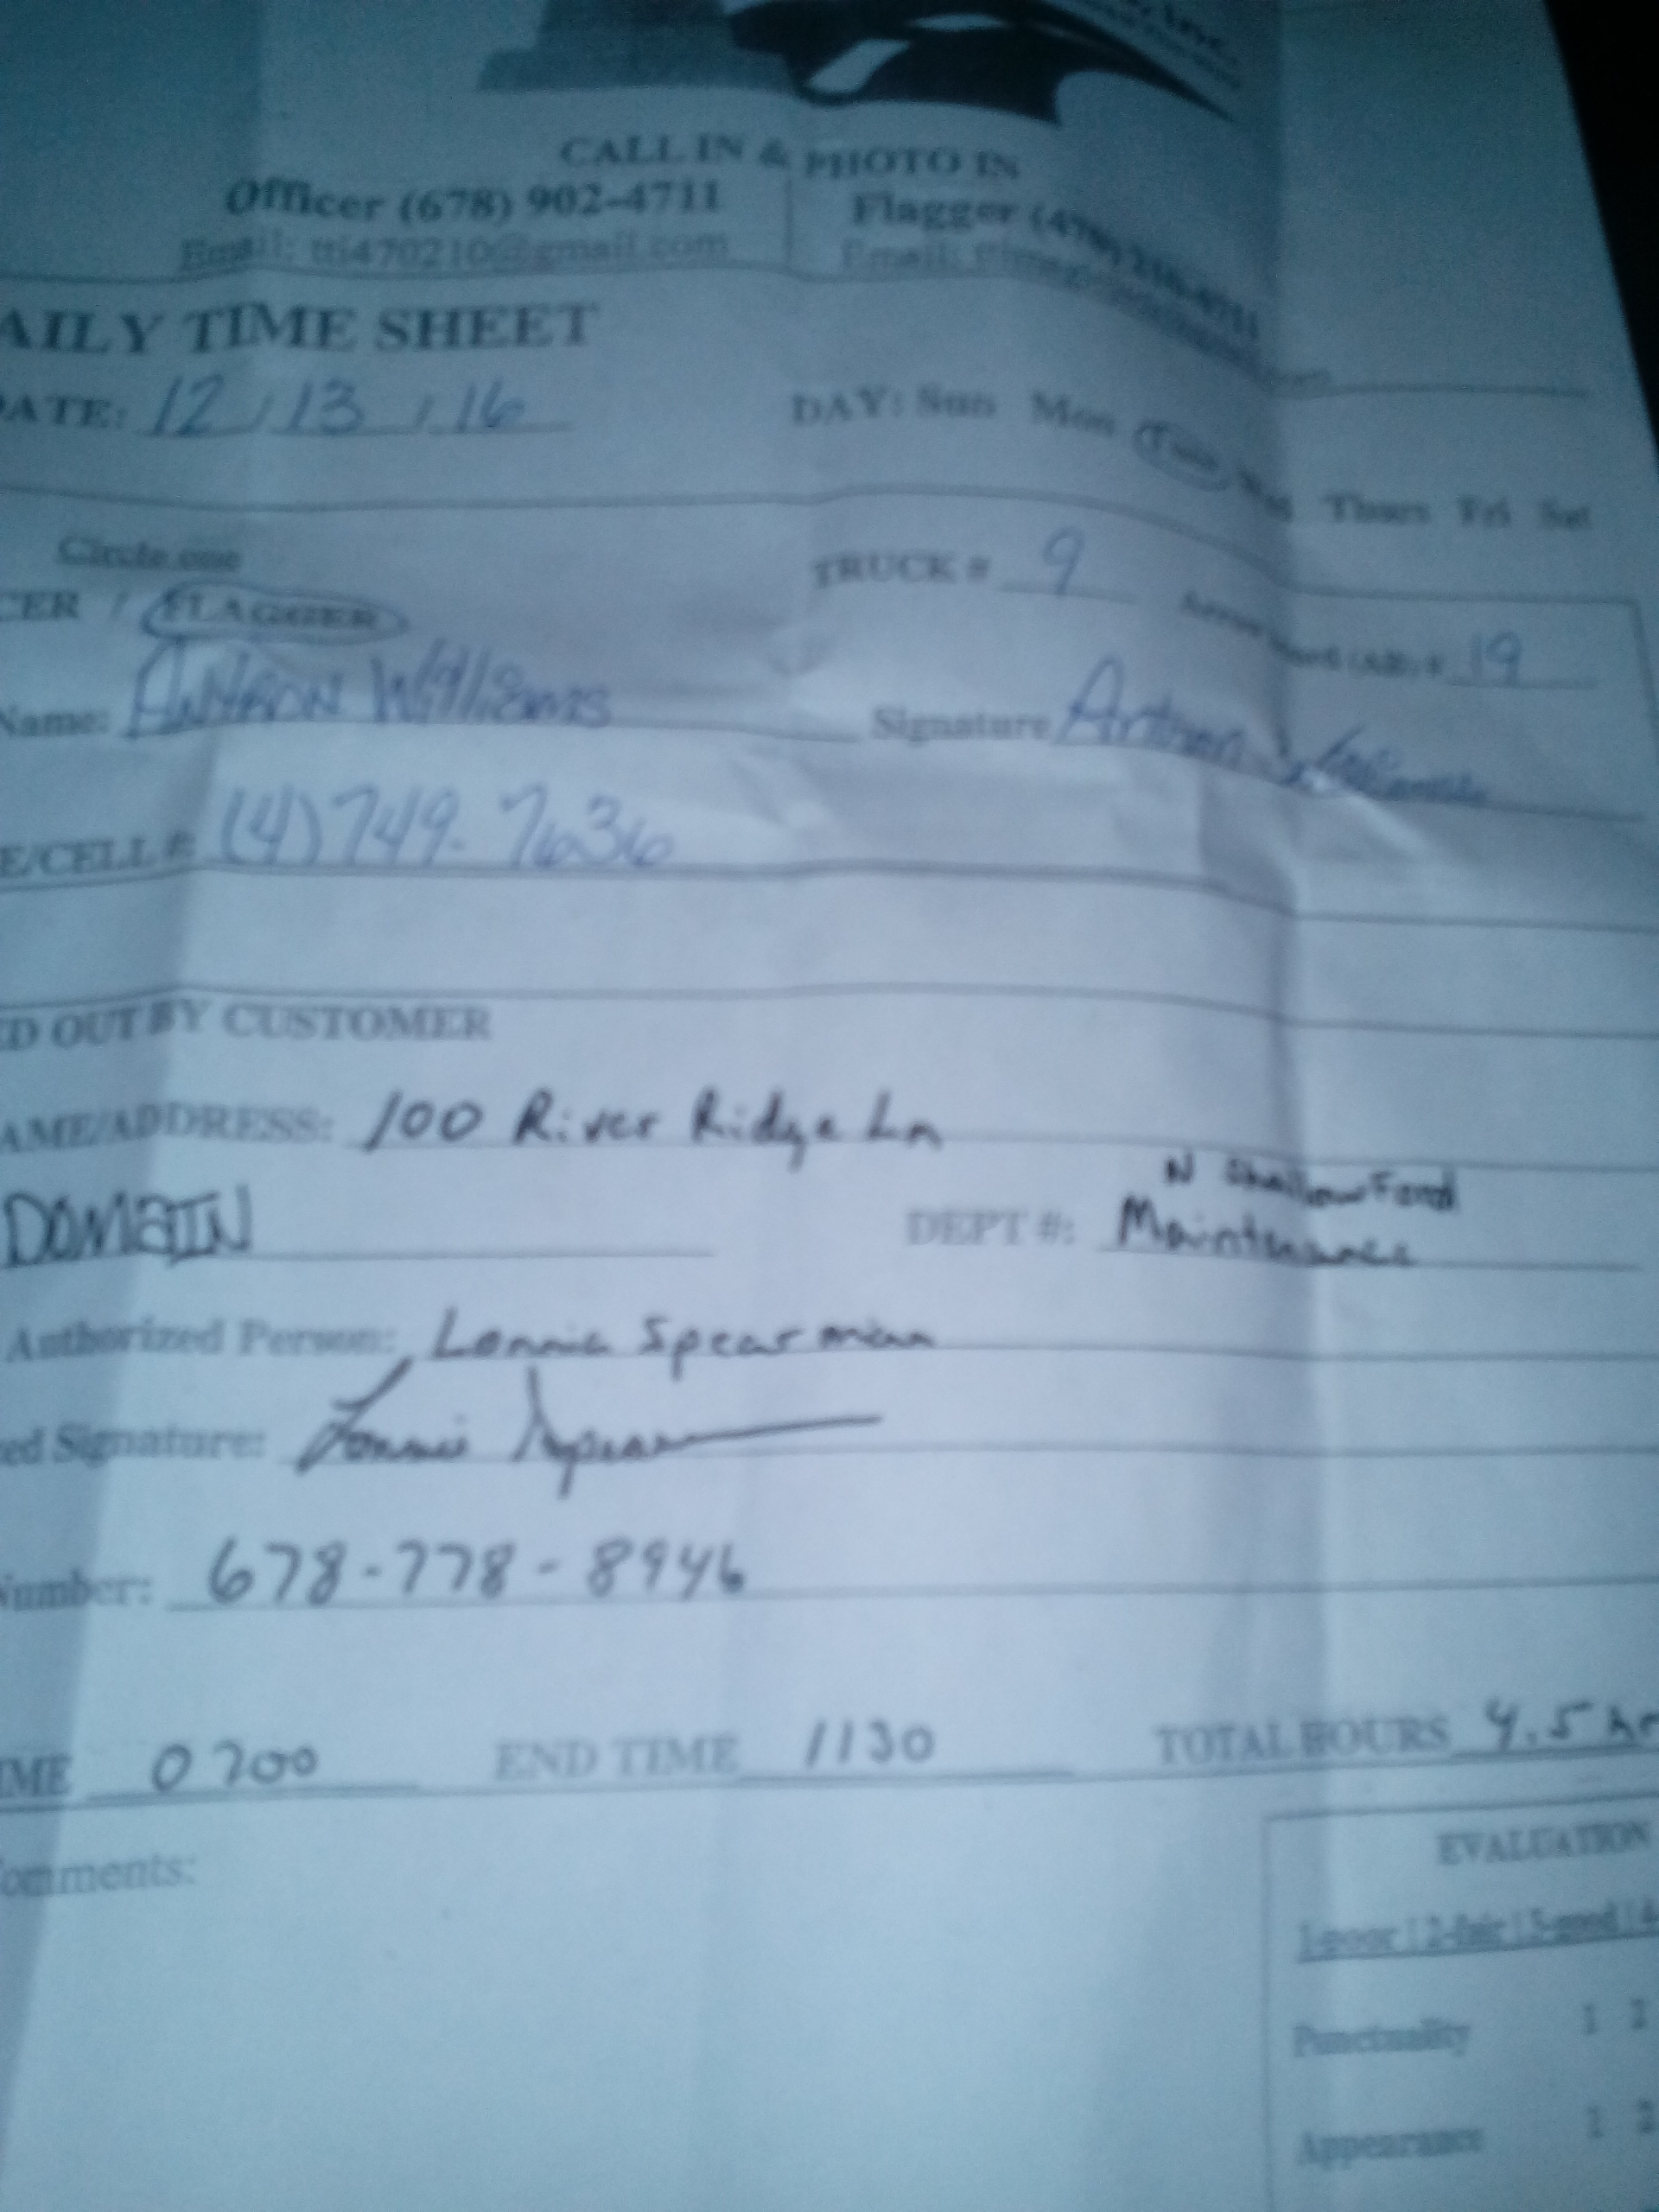 Inc.
CALL IN & PHOTO IN
Officer (678) 902-4711 Flagger
Email: tti470210@gmail.com Email:
AILY TIME SHEET
DATE: 12 / 13 / 16 DAY: Sun Mon Tues Wed Thurs Fri Sat
Circle one
TRUCK # 9
CER / FLAGGER
19
Name: Williams Signature
E/CELL #: (4) 749-7636
ED OUT BY CUSTOMER
AME/ADDRESS: 100 River Ridge Ln
N Shallowford
DOMAIN DEPT #: Maintenance
Authorized Person: Lonnie Spearman
ed Signature: Lonnie Spearman
Number: 678-778-8946
IME 0700 END TIME 1130 TOTAL HOURS 4.5 hr
omments:
EVALUATION
1-poor | 2-fair | 3-good | 4-
Punctuality 1 2
Appearance 1 2